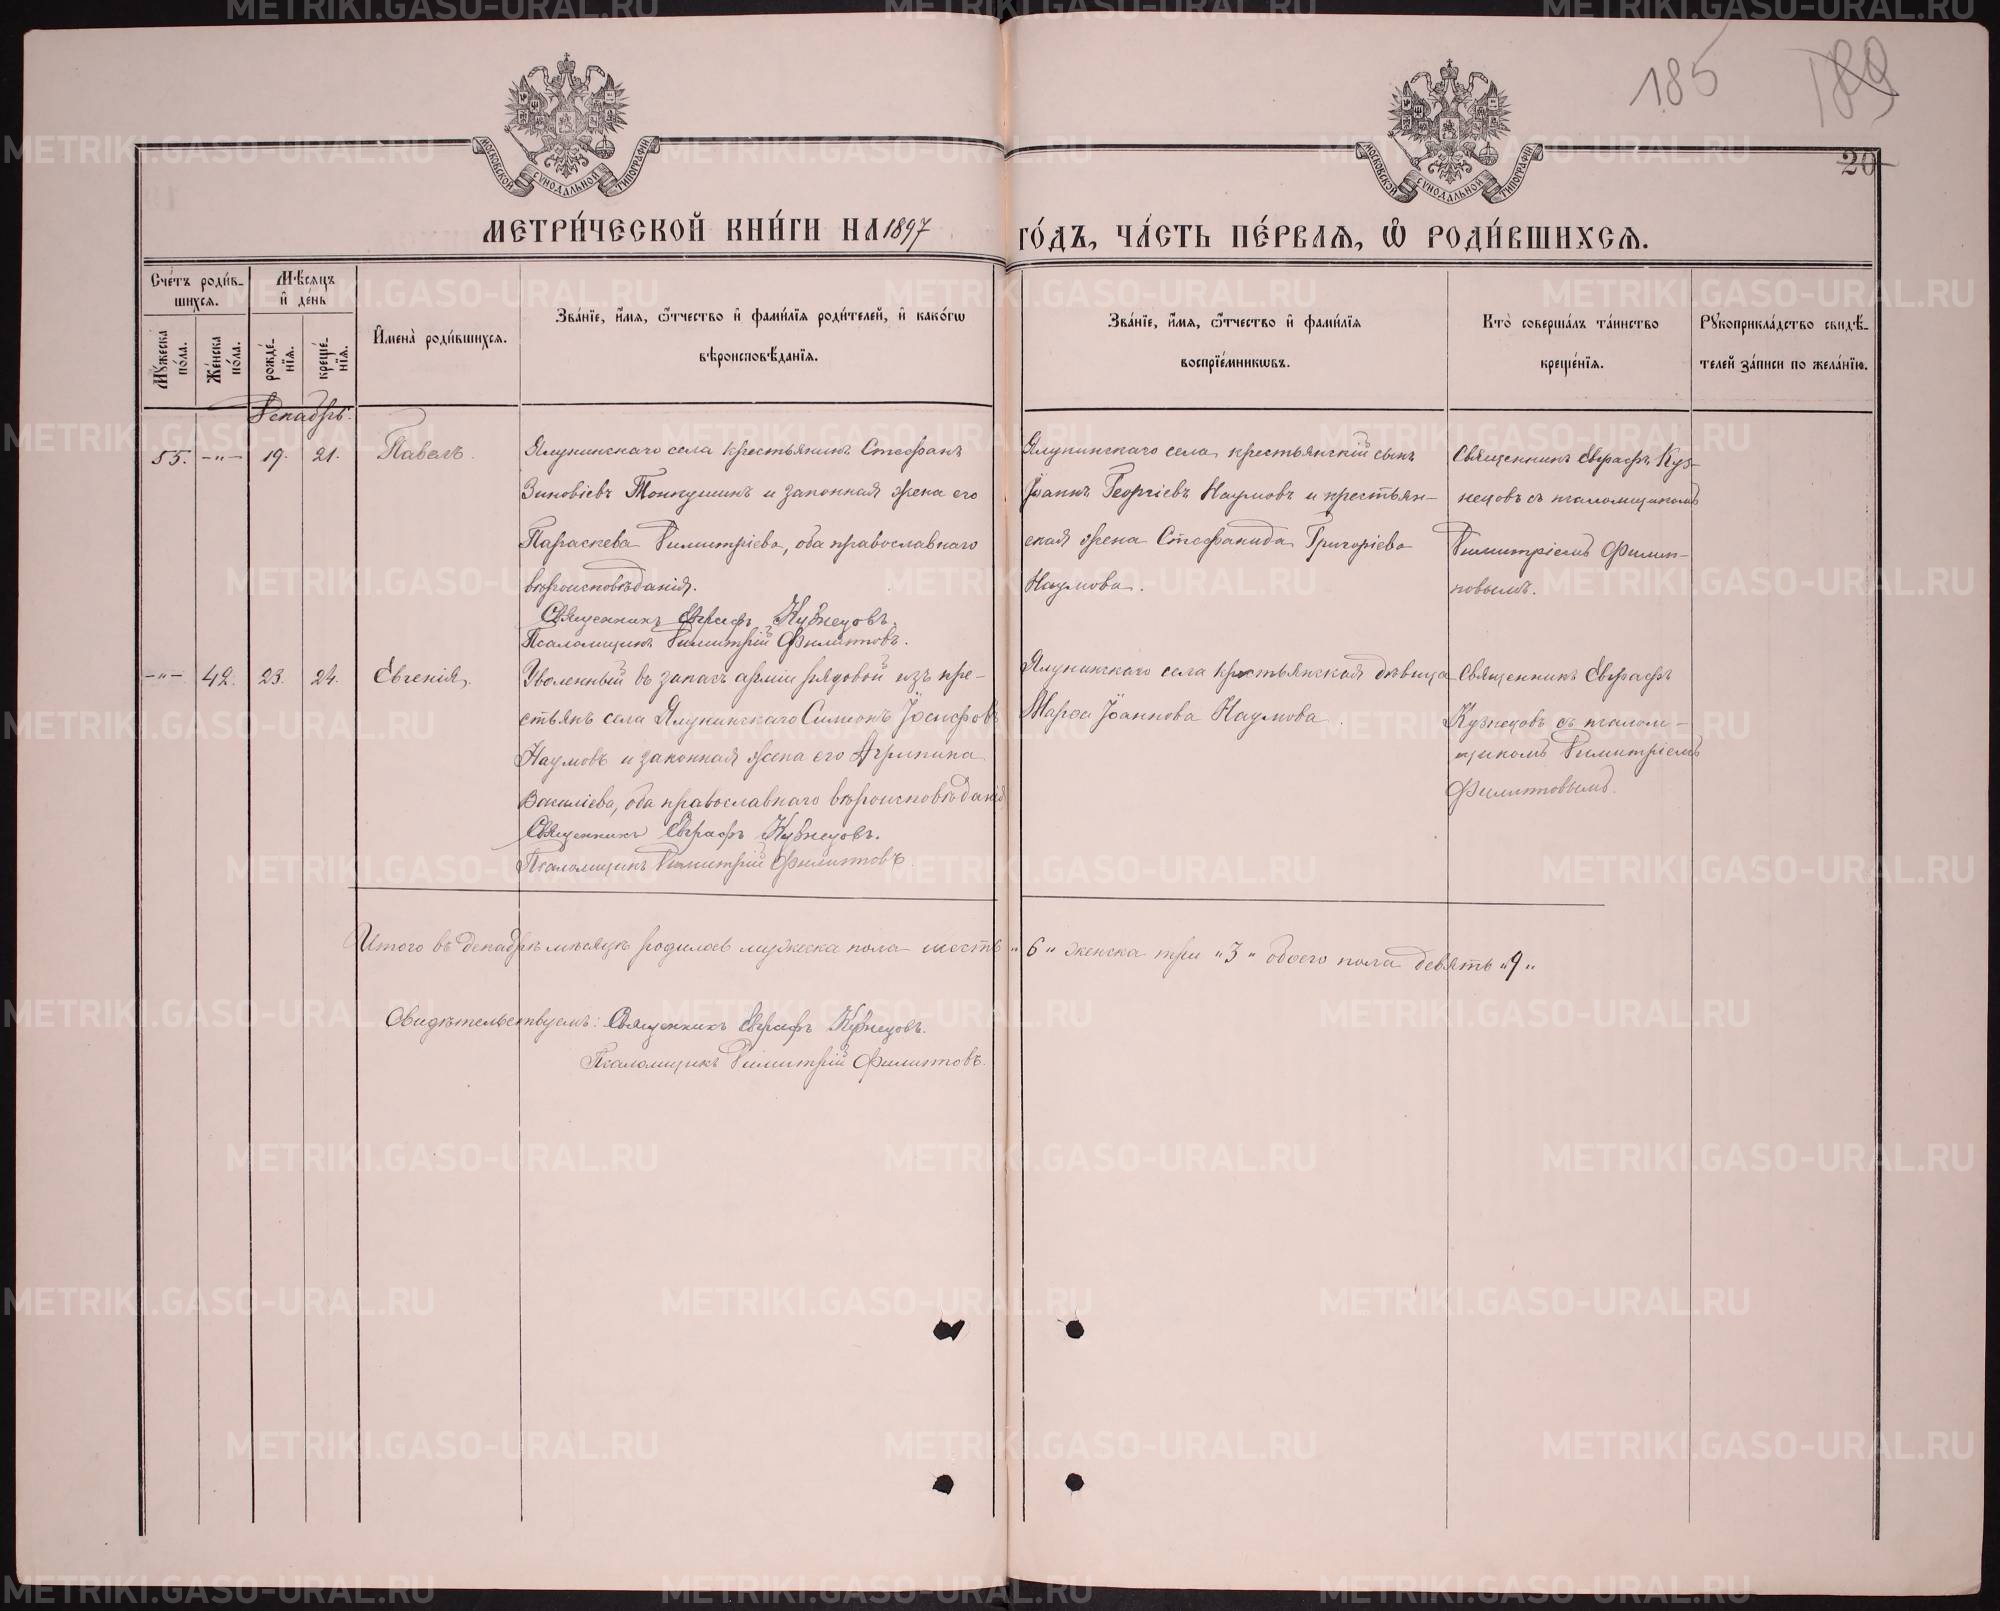 185 189
20
МОСКОВСКОЙ СУНОДАЛЬНОЙ ТИПОГРАФІИ
МОСКОВСКОЙ СУНОДАЛЬНОЙ ТИПОГРАФІИ
МЕТРИ́ЧЕСКОЙ КНИ́ГИ НА 1897 ГО́ДЪ, ЧА́СТЬ ПЕ́РВАЯ, Ѿ РОДИ́ВШИХСЯ.
Сче́тъ роди́в-
шихся.
Мѣ́сяцъ
и҆ де́нь
Мꙋ́жеска
по́ла.
Же́нска
по́ла.
рожде́-
нїя.
креще́-
нїя.
И҆мена̀ роди́вшихся.
Зва́нїе, и҆́мя, ѻ҆́тчество и҆ фами́лїя роди́телей, и҆ како́гѡ
вѣроисповѣ́данїя.
Зва́нїе, и҆́мя, ѻ҆́тчество и҆ фами́лїя
воспрїе́мникѡвъ.
Кто̀ соверша́лъ та́инство
креще́нїя.
Рꙋкоприкла́дство свидѣ́-
телей за́писи по жела́нїю.
Декабрь.
55. -„- 19. 21. Павелъ.
Ялунинскаго села крестьянинъ Стефанъ
Зиновіевъ Тонкушинъ и законная жена его
Параскева Димитріева, оба православнаго
вѣроисповѣданія.
Священникъ Евграфъ Кузнецовъ.
Псаломщикъ Димитрій Филипповъ.
Ялунинскаго села крестьянскій сынъ
Іоаннъ Георгіевъ Наумовъ и крестьян-
ская жена Стефанида Григоріева
Наумова.
Священникъ Евграфъ Куз-
нецовъ съ псаломщикомъ
Димитріемъ Филип-
повымъ.
-„- 42. 23. 24. Евгенія.
Уволенный въ запасъ арміи рядовой изъ кре-
стьянъ села Ялунинскаго Симеонъ Іосифовъ
Наумовъ и законная жена его Агрипина
Василіева, оба православнаго вѣроисповѣданія
Священникъ Евграфъ Кузнецовъ.
Псаломщикъ Димитрій Филипповъ.
Ялунинскаго села крестьянская дѣвица
Марѳа Іоаннова Наумова.
Священникъ Евграфъ
Кузнецовъ съ псалом-
щикомъ Димитріемъ
Филипповымъ.
Итого въ декабрѣ мѣсяцѣ родилось мужеска пола шесть „6„ женска три „3„ обоего пола девять „9„
Свидѣтельствуемъ: Священникъ Евграфъ Кузнецовъ.
Псаломщикъ Димитрій Филипповъ.
METRIKI.GASO-URAL.RU